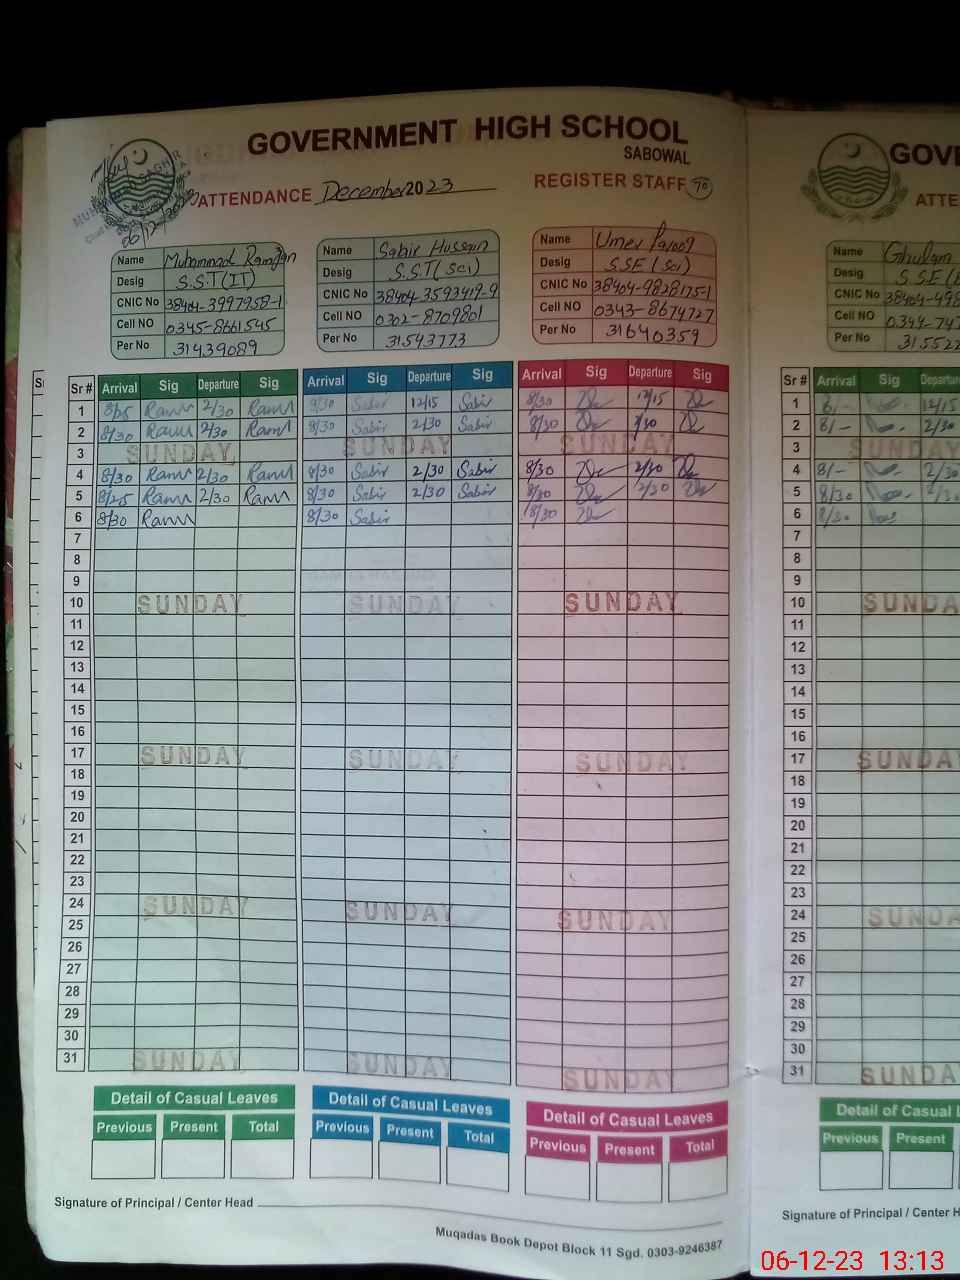 GOVERNMENT HIGH SCHOOL
SABOWAL
ATTENDANCE December 2023 REGISTER STAFF
06/12/2023
Name Muhammad Ramzan
Desig S.S.T(IT)
CNIC No 38404-3997958-1
Cell NO 0345-8661545
Per No 31439089
Name Sabir Hussain
Desig S.S.T(Sci)
CNIC No 38404-3593419-9
Cell NO 0302-8709801
Per No 31543773
Name Umer Farooq
Desig S.S.E(Sci)
CNIC No 38404-9828175-1
Cell NO 0343-8674727
Per No 31640359
Sr # Arrival Sig Departure Sig Arrival Sig Departure Sig Arrival Sig Departure Sig
1 8/25 Ram 2/30 Ram 8/30 Sabir 12/15 Sabir 8/30 12/15
2 8/30 Ram 2/30 Ram 8/30 Sabir 2/30 Sabir 8/30 2/30
3 SUNDAY SUNDAY SUNDAY
4 8/30 Ram 2/30 Ram 8/30 Sabir 2/30 Sabir 8/30 2/30
5 8/25 Ram 2/30 Ram 8/30 Sabir 2/30 Sabir 8/30 2/30
6 8/30 Ram 8/30 Sabir 8/30
7
8
9
10 SUNDAY SUNDAY SUNDAY
11
12
13
14
15
16
17 SUNDAY SUNDAY SUNDAY
18
19
20
21
22
23
24 SUNDAY SUNDAY SUNDAY
25
26
27
28
29
30
31 SUNDAY SUNDAY SUNDAY
Detail of Casual Leaves Detail of Casual Leaves Detail of Casual Leaves
Previous Present Total Previous Present Total Previous Present Total
Signature of Principal / Center Head
Muqadas Book Depot Block 11 Sgd. 0303-9246387
GOVE
ATTE
Name Ghulam
Desig S.S.E
CNIC No 38404-498
Cell NO 0344-747
Per No 31522
Sr # Arrival Sig Departure
1 8/- 12/15
2 8/- 2/30
3 SUNDA
4 8/- 2/30
5 8/30 2/30
6 8/30
7
8
9
10 SUNDA
11
12
13
14
15
16
17 SUNDA
18
19
20
21
22
23
24 SUNDA
25
26
27
28
29
30
31 SUNDA
Detail of Casual L
Previous Present
Signature of Principal / Center H
06-12-23 13:13